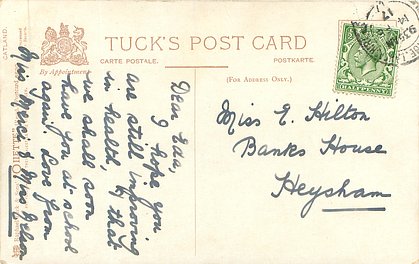 TUCK'S POST CARD
CARTE POSTALE.
POSTKARTE.
By Appointment
(FOR ADDRESS ONLY.)
HALFPENNY
Dear
I hope you
are still improving
in health, & that
we shall soon
have you at school
again. Love from
Miss
& Miss Nelson
Miss E. Hilton
Banks House
Heysham